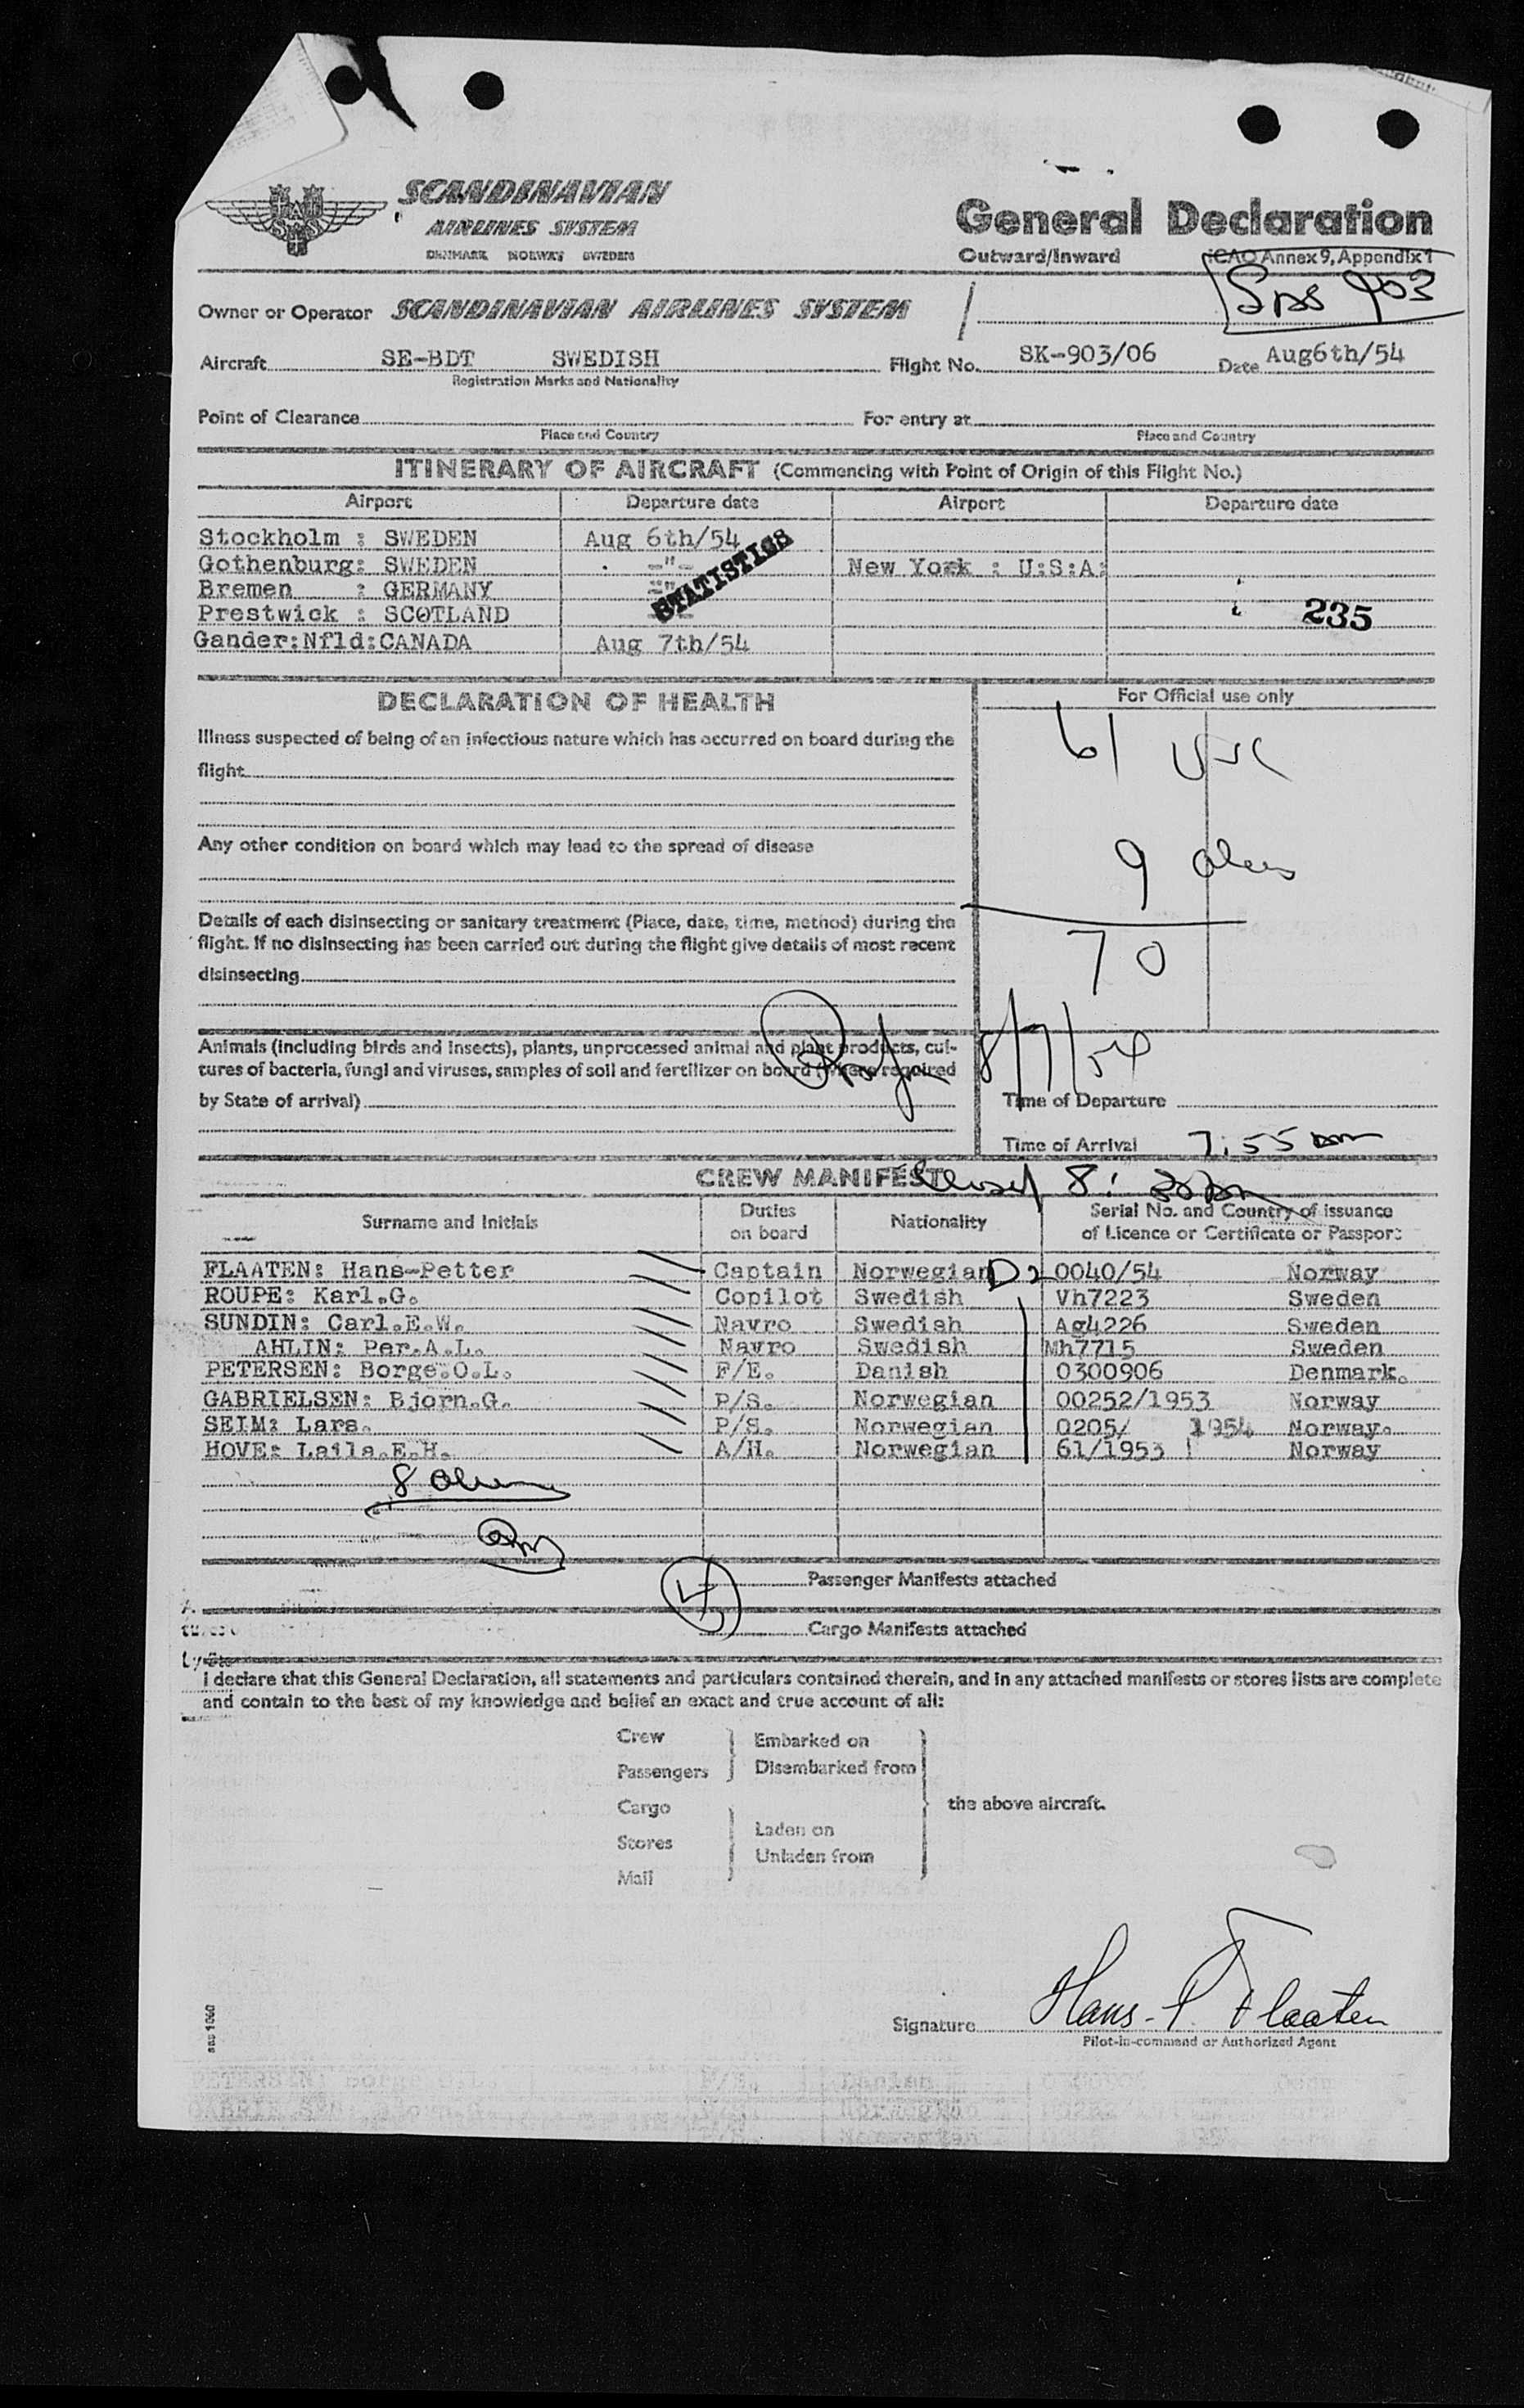 SCANDINAVIAN
AIRLINES SYSTEM
DENMARK NORWAY SWEDEN
General Declaration
Outward/Inward ICAO Annex 9, Appendix 1
SAS 903
Owner or Operator SCANDINAVIAN AIRLINES SYSTEM
Aircraft SE-BDT SWEDISH Flight No. SK-903/06 Date Aug6th/54
Registration Marks and Nationality
Point of Clearance For entry at
Place and Country Place and Country
ITINERARY OF AIRCRAFT (Commencing with Point of Origin of this Flight No.)
Airport Departure date Airport Departure date
Stockholm : SWEDEN Aug 6th/54
Gothenburg: SWEDEN -"- New York : U:S:A:
Bremen : GERMANY -"-
STATISTICS
Prestwick : SCOTLAND 235
Gander:Nfld:CANADA Aug 7th/54
DECLARATION OF HEALTH
For Official use only
Illness suspected of being of an infectious nature which has occurred on board during the
flight
61 USC
Any other condition on board which may lead to the spread of disease
9 aliens
70
Details of each disinsecting or sanitary treatment (Place, date, time, method) during the
flight. If no disinsecting has been carried out during the flight give details of most recent
disinsecting
Animals (including birds and insects), plants, unprocessed animal and plant products, cul-
tures of bacteria, fungi and viruses, samples of soil and fertilizer on board (where required
by State of arrival)
8/7/54
Time of Departure
Time of Arrival 7:55 pm
CREW MANIFEST
8:30 pm
Surname and Initials Duties on board Nationality Serial No. and Country of issuance
of Licence or Certificate or Passport
FLAATEN: Hans-Petter Captain Norwegian D2 0040/54 Norway
ROUPE: Karl.G. Copilot Swedish Vh7223 Sweden
SUNDIN: Carl.E.W. Navro Swedish Ag4226 Sweden
AHLIN: Per.A.L. Navro Swedish Mh7715 Sweden
PETERSEN: Borge.O.L. F/E. Danish 0300906 Denmark.
GABRIELSEN: Bjorn.G. P/S. Norwegian 00252/1953 Norway
SEIM: Lars. P/S. Norwegian 0205/ 1954 Norway.
HOVE: Laila.E.H. A/H. Norwegian 61/1953 Norway
8 aliens
Passenger Manifests attached
Cargo Manifests attached
I declare that this General Declaration, all statements and particulars contained therein, and in any attached manifests or stores lists are complete
and contain to the best of my knowledge and belief an exact and true account of all:
Crew
Passengers
Embarked on
Disembarked from
Cargo
Stores
Mail
Laden on
Unladen from
the above aircraft.
Signature Hans-P. Flaaten
Pilot-in-command or Authorized Agent
sas 1060